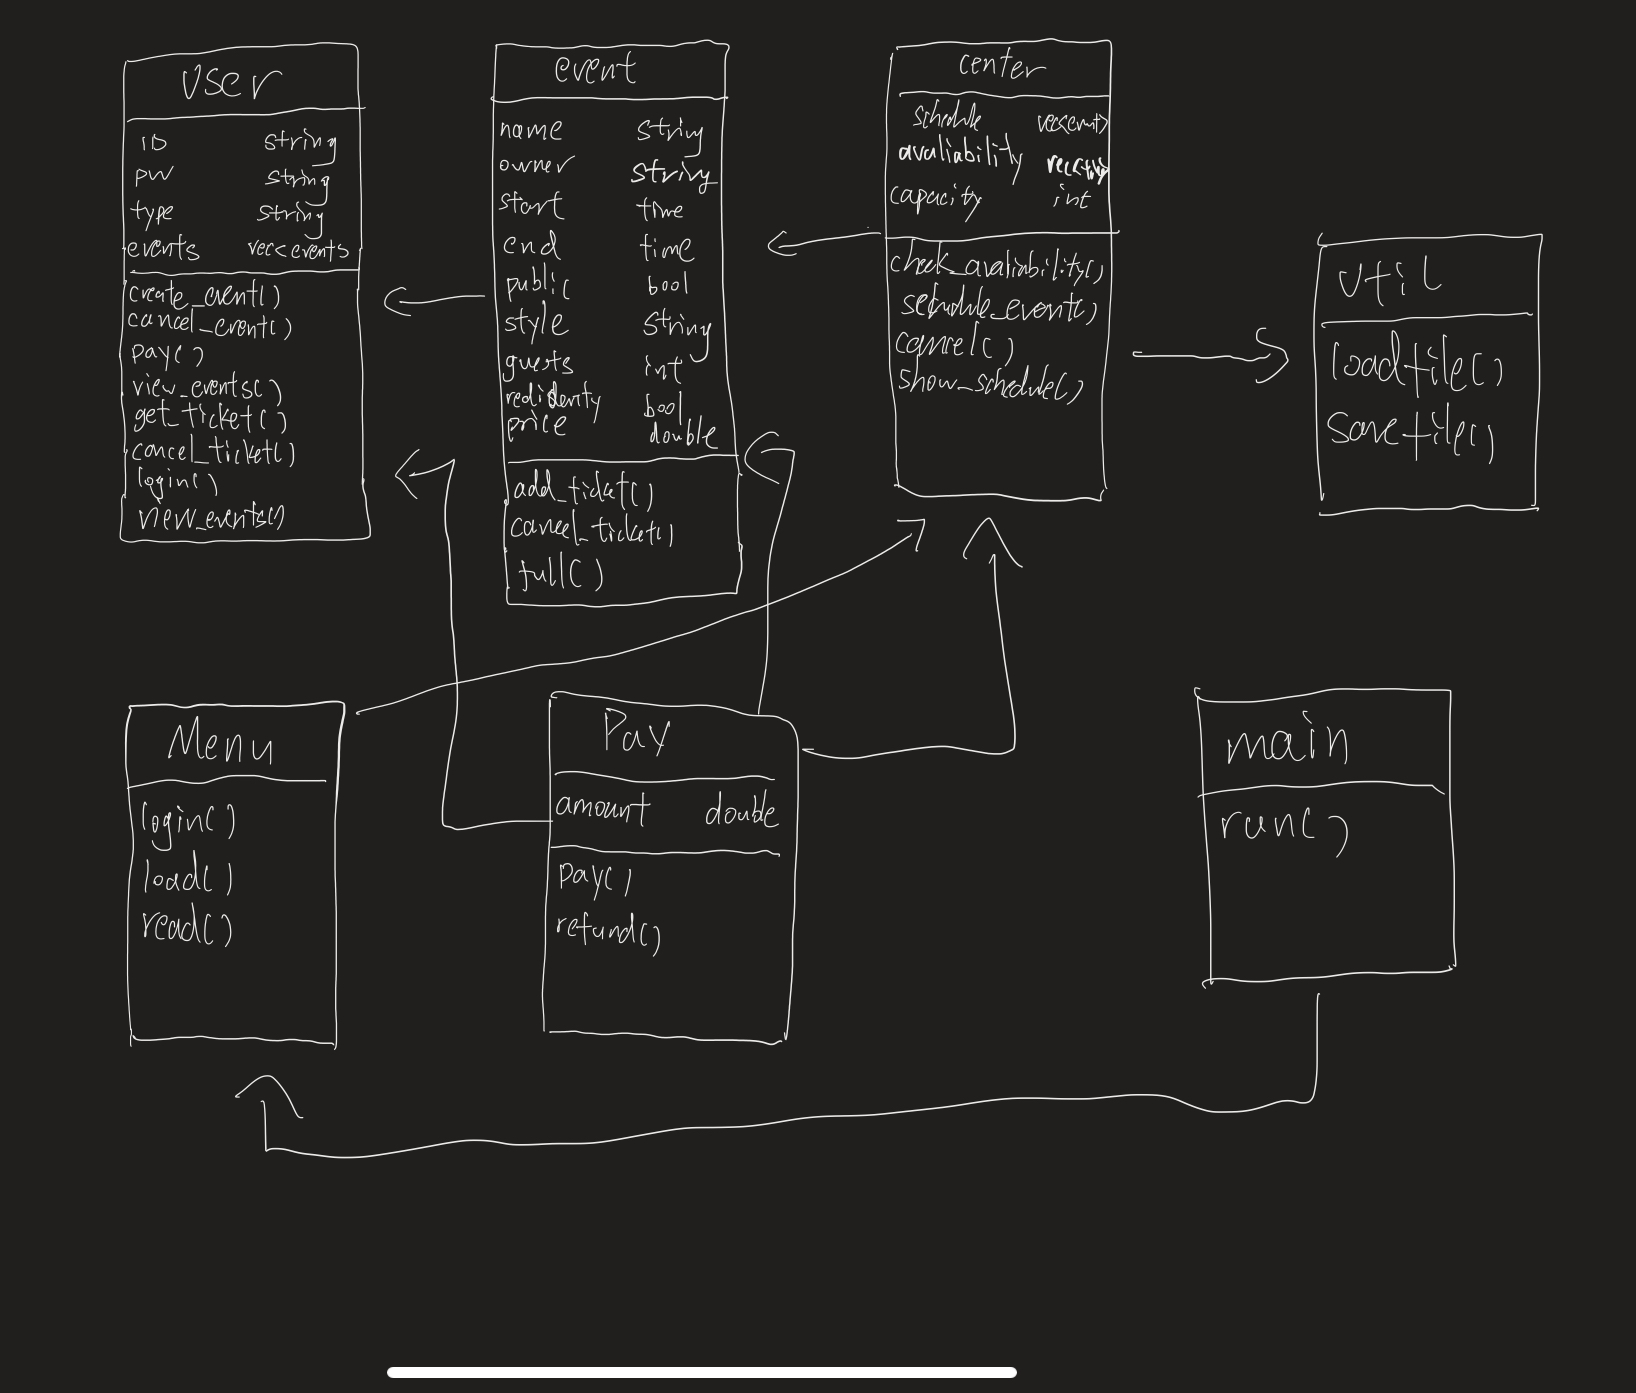 User
ID string
pw string
type string
events vec<events
create_event()
cancel_event()
pay()
view_events()
get_ticket()
cancel_ticket()
login()
view_events()
event
name string
owner string
start time
end time
public bool
style string
guests int
bool
price double
add_ticket()
cancel_ticket()
full()
center
schedule vec<event>
avaliability
capacity int
check_avaliability()
schedule_event()
cancel()
show_schedule()
util
loadfile()
savefile()
Menu
login()
load()
read()
Pay
amount double
pay()
refund()
main
run()